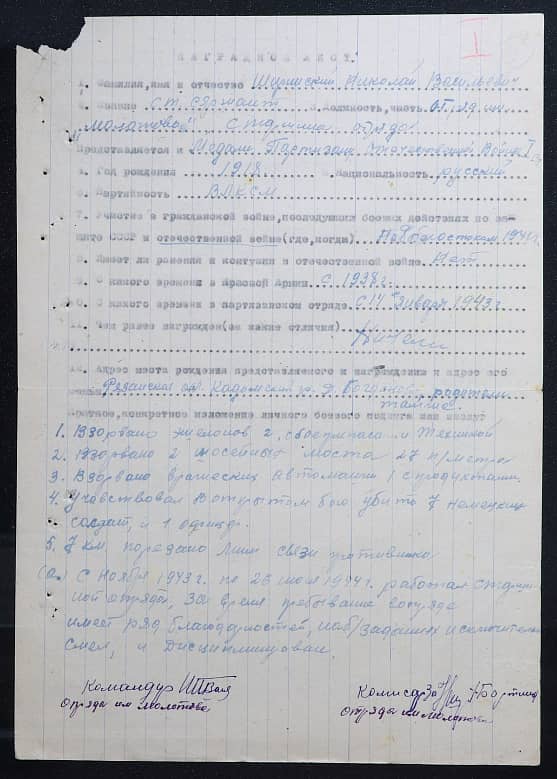 I
НАГРАДНОЙ ЛИСТ.
1. Фамилия,имя и отчество Николай Васильевич
2. Звание ст. сержант 3. Должность,часть
"Молотова" старшина отряда
Представляется к Медали Партизану Отечественной Войны I ст
4. Год рождения 1918 5. Национальность русский
6. Партийность ВЛКСМ
7. Участие в гражданской войне,последующих боевых действиях по за-
щите СССР и отечественной войне(где,когда) 1941г.
8. Имеет ли ранения и контузии в отечественной войне Нет
9. С какого времени в Красной Армии с 1938г.
10. С какого времени в партизанском отряде с 14 января 1943г
11. Чем ранее награжден(за какие отличия)
12. Адрес места рождения представляемого к награждению и адрес его
Рязанская обл. Кадомский р. д. родители
там же.
Краткое,конкретное изложение личного боевого подвига или заслуг
1. Взорвано эшелонов 2, с боеприпаса и техникой
2. Взорвано 2 шосейных моста 27 п/метра
3. Взорвано вражеских автомашин 1 с продуктами.
4. Учавствовал в открытом бою убито 7 немецких
солдат, и 1 офицер.
5. 7 км. порезано линии связи противника
6. С Ноября 1943г. по 26 июля 1944г. работал старши-
ной отряда, За время пребывание в отряде
имеет ряд благодарностей, на б/заданиях исключительно
смел, и Дисциплинирован.
Командир
Отряда им Молотова
Комисар
Отряда им Молотова